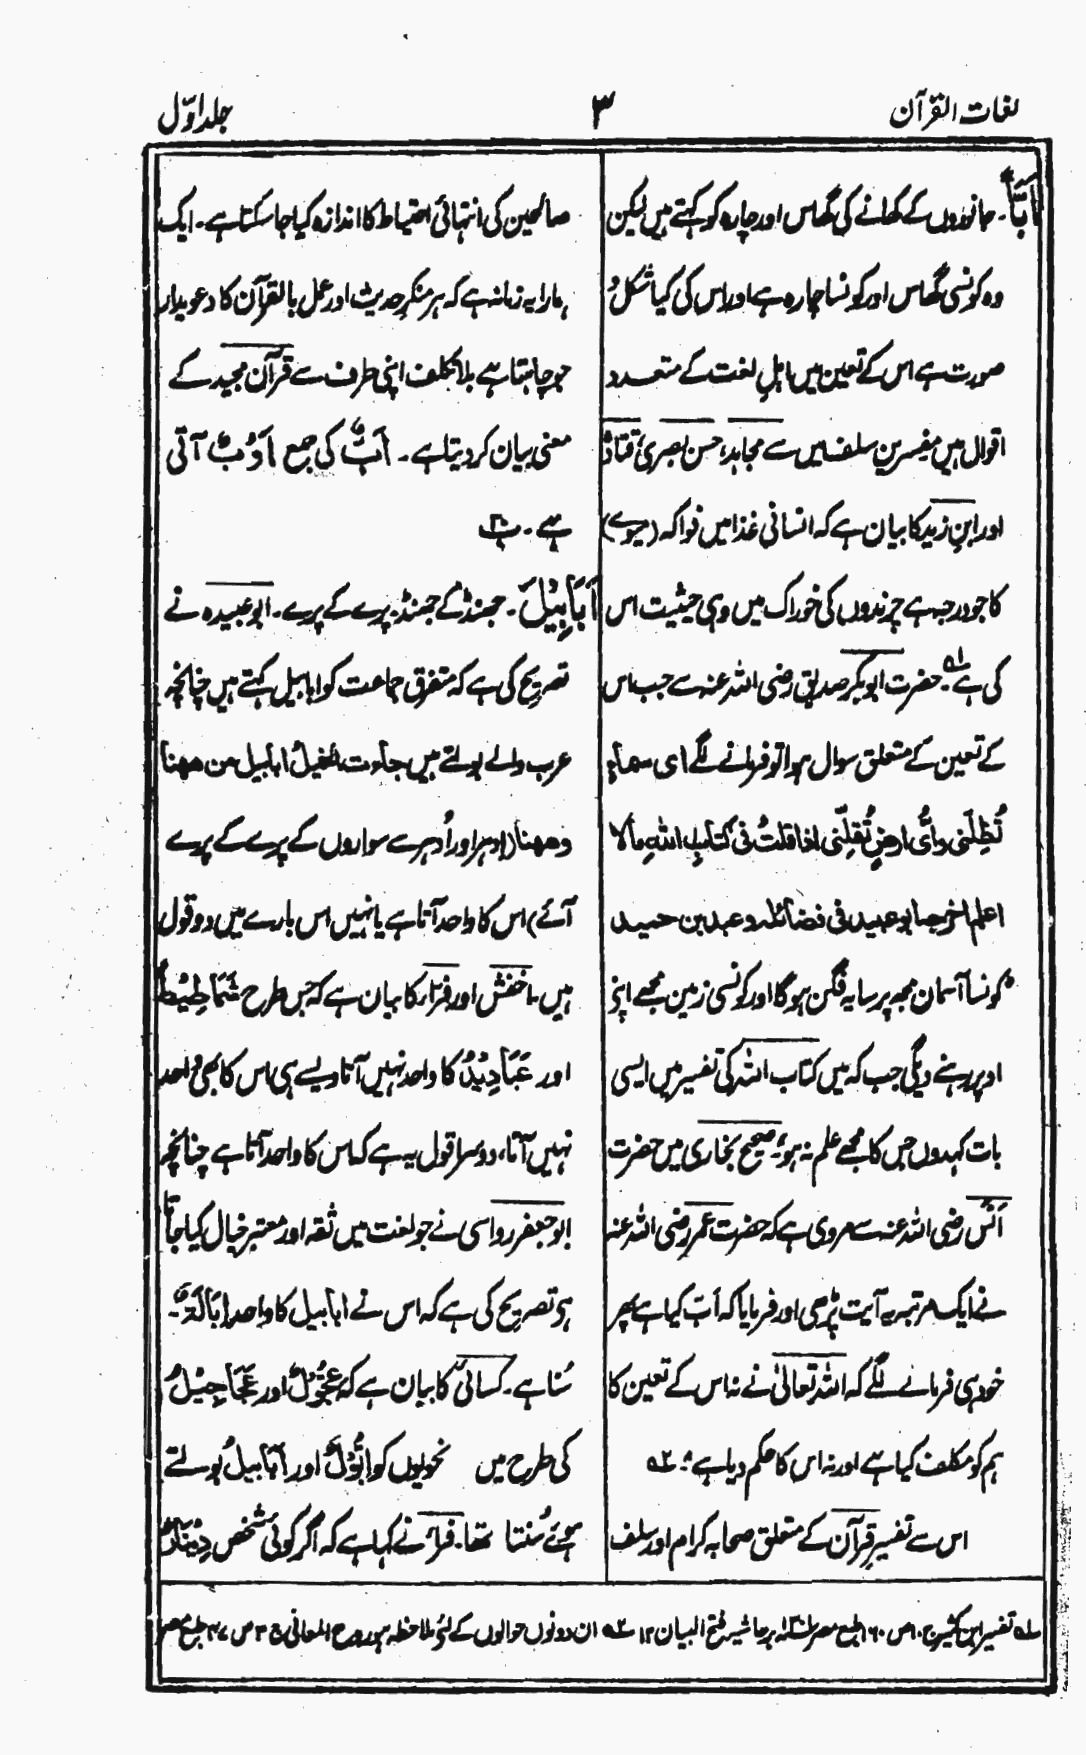 لغات القرآن
۳
جلد اوّل
اَبًّا۔ جانوروں کے کھانے کی گھاس اور چارہ کو کہتے ہیں لیکن
وہ کونسی گھاس اور کونسا چارہ ہے اور اس کی کیا شکل و
صورت ہے اس کے تعین میں اہلِ لغت کے متعدد
اقوال ہیں مفسرینِ سلف میں سے مجاہد، حسن بصری، قتادہ
اور ابنِ زید کا بیان ہے کہ انسانی غذا میں فواکہ (میوے)
کا جو درجہ ہے چرندوں کی خوراک میں وہی حیثیت اس
کی ہے لہ۔ حضرت ابوبکر صدیق رضی اللہ عنہ سے جب اس
کے تعین کے متعلق سوال ہوا تو فرمانے لگے ای سماءٍ
تُظِلّنی و اَیُّ ارضٍ تُقِلّنی اذا قلتُ فی کتابِ اللہِ مالا
اعلم اخرجہ ابو عبید فی فضائلہ و عبد بن حمید
"کونسا آسمان مجھ پر سایہ فگن ہوگا اور کونسی زمین مجھے اپنے
اوپر رہنے دیگی جب کہ میں کتاب اللہ کی تفسیر میں ایسی
بات کہدوں جس کا مجھے علم نہ ہو"۔ صحیح بخاری میں حضرت
اَنَس رضی اللہ عنہ سے مروی ہے کہ حضرت عمر رضی اللہ عنہ
نے ایک مرتبہ یہ آیت پڑھی اور فرمایا کہ اَبّ کیا ہے پھر
خود ہی فرمانے لگے کہ اللہ تعالیٰ نے نہ اس کے تعین کا
ہم کو مکلف کیا ہے اور نہ اس کا حکم دیا ہے"۔ ۲ہ
اس سے تفسیرِ قرآن کے متعلق صحابہ کرام اور سلف
صالحین کی انتہائی احتیاط کا اندازہ کیا جا سکتا ہے۔ ایک
ہمارا یہ زمانہ ہے کہ ہر منکرِ حدیث اور عمل بالقرآن کا دعویدار
جو چاہتا ہے بلا تکلف اپنی طرف سے قرآن مجید کے
معنی بیان کر دیتا ہے۔ اَبٌّ کی جمع اَوُبٌّ آتی
ہے۔ پ۳۰
اَبَابِیْلَ۔ جھنڈ کے جھنڈ، پرے کے پرے۔ ابوعبیدہ نے
تصریح کی ہے کہ متفرق جماعت کو ابابیل کہتے ہیں چنانچہ
عرب والے بولتے ہیں جاءت الخیلُ ابابیل من ھھنا
وھھنا (ادہر اور اُدہر سے سواروں کے پرے کے پرے
آئے) اس کا واحد آتا ہے یا نہیں اس بارے میں دو قول
ہیں۔ اخفش اور فرّاء کا بیان ہے کہ جس طرح شَمَاطِیْطُ
اور عَبَادِیْدُ کا واحد نہیں آتا ویسے ہی اس کا بھی واحد
نہیں آتا، دوسرا قول یہ ہے کہ اس کا واحد آتا ہے چنانچہ
ابو جعفر رواسی نے جو لغت میں ثقہ اور معتبر خیال کیا جاتا
ہی تصریح کی ہے کہ اس نے ابابیل کا واحد اِبَالَةٌ۔
سُنا ہے۔ کسائی کا بیان ہے کہ عِجَّوْلٌ اور عَجَاجِیْلُ
کی طرح میں نحویوں کو اِبَّوْلٌ اور اَبَابِیلُ بولتے
ہوئے سُنتا تھا۔ فراء نے کہا ہے کہ اگر کوئی شخص دِیْنَارٌ
لہ تفسیر ابن کثیر ج۱۰ ص۱۶۰ طبع مصر بر حاشیہ فتح البیان ۱۲ ۲ہ ان دونوں حوالوں کے لئے ملاحظہ ہو روح المعانی ج۳۰ ص۴۷ طبع مصر